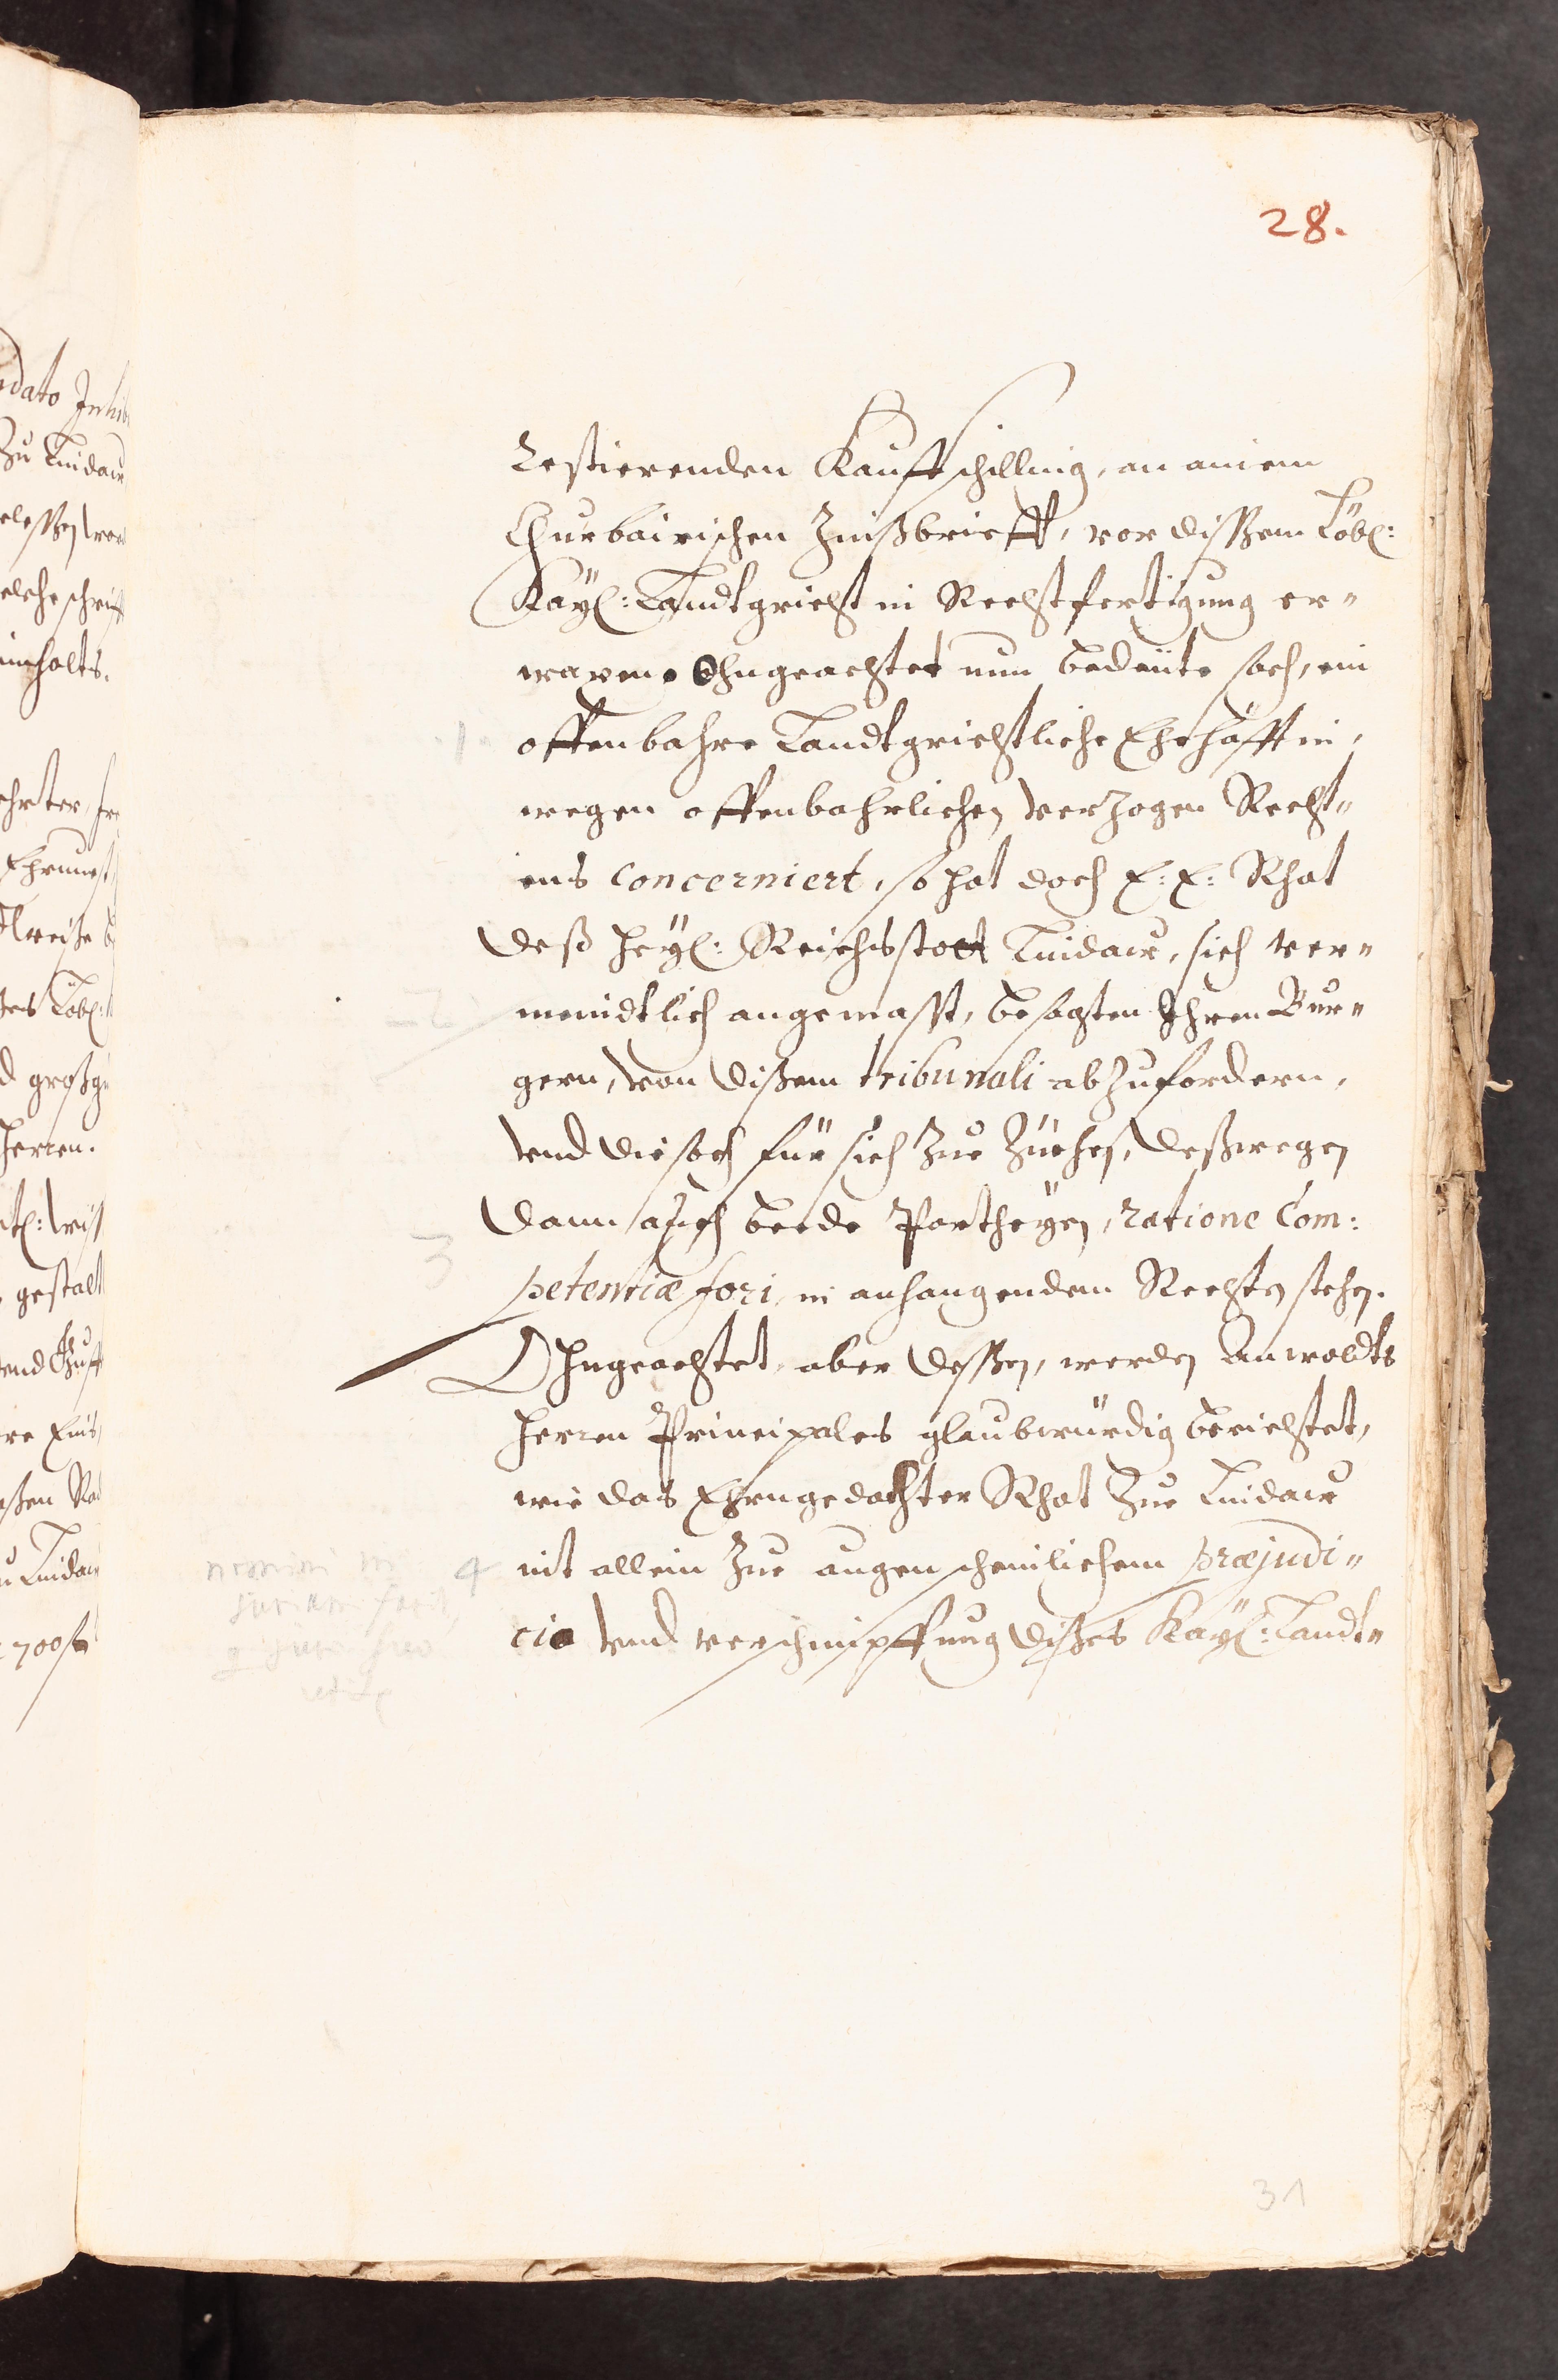 28.
Restierenden Kauffschilling, an ainem
Churbairischen Zinißbrieff, vor dissem Löbl:
Kayl: Landtgricht in Rechtfertigung er-
waxen. Ohngeachtet nun bedeüte sach, ein
1. offenbahre Landtgrichtliche Ehehäfftin,
wegen offenbahrlichen verzogen Recht-
ens concerniert, so hat doch E: E: Rhat
deß Heyl: Reichsstatt Lindaw, sich ver-
2 meindtlich angemasst, besagten Ihren Bur-
gern, von dißem tribunali abzufordern,
vnd die sach für sich zue Züehen, deßwegen
dann auch beede Partheyen, ratione Com:
3 petentiæ fori, in anhangendem Rechten stehen.
Ohngeachtet aber dessen, werden Anwaldts
Herren Principales glaubwürdig berichtet,
wie das Ehrngedachter Rhat Zue Lindaw
4 nit allein Zue augenscheinlichem præjudi-
cio vnd verschimpffung dißes Kayl: Landt-
31